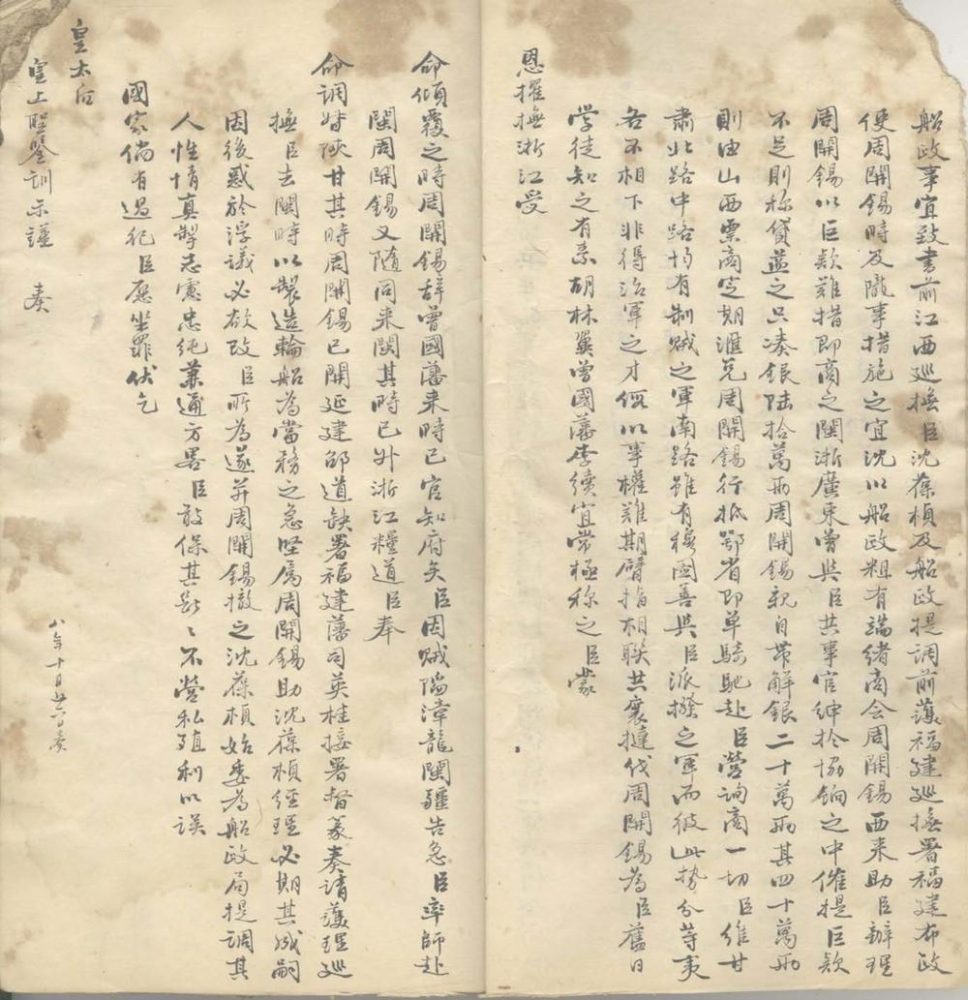 船政事宜致書前江西巡撫臣沈葆楨及船政提調前護福建巡撫署福建布政
使周開錫時及隴事措施之宜沈以船政粗有端緒商令周開錫西来助臣辦理
周開錫以巨欵難措即商之閩浙廣東曾與臣共事官紳於協餉之中催提巨欵
不足則称貸益之只凑銀陆拾萬兩周開錫親自帯解銀二十萬兩其四十萬兩
則由山西票商定期滙兑周開錫行抵鄂省即单騎馳赴臣營詢商一切臣維甘
肅北路中路均有制賊之軍南路雖有穆圖善與臣派撥之軍而彼此势分等夷
各不相下非得治軍之才假以事權難期臂指相聯共襄撻伐周開錫為臣舊日
学徒知之有素胡林翼曾國藩李續宜常極称之臣蒙
恩擢撫浙江受
命傾覆之時周開錫辞曾國藩来時已官知府矣臣因贼陷漳龍閩疆告急臣率師赴
閩周開錫又随同来閩其時已升浙江糧道臣奉
命調督陝甘其時周開錫已開延建邵道缺署福建藩司英桂接署督篆奏請護理巡
撫臣去閩時以製造輪船為當務之急坚属周開錫助沈葆楨經理必期其成嗣
因後惑於浮議必欲改臣所為遂并周開錫撤之沈葆楨始委為船政局提調其
人性情真挚志慮忠純兼通方畧臣敢保其断〻不營私殖利以誤
國家倘有過犯臣應坐罪伏乞
皇太后
皇上聖鑒訓示謹 奏
八年十月廿六日奏